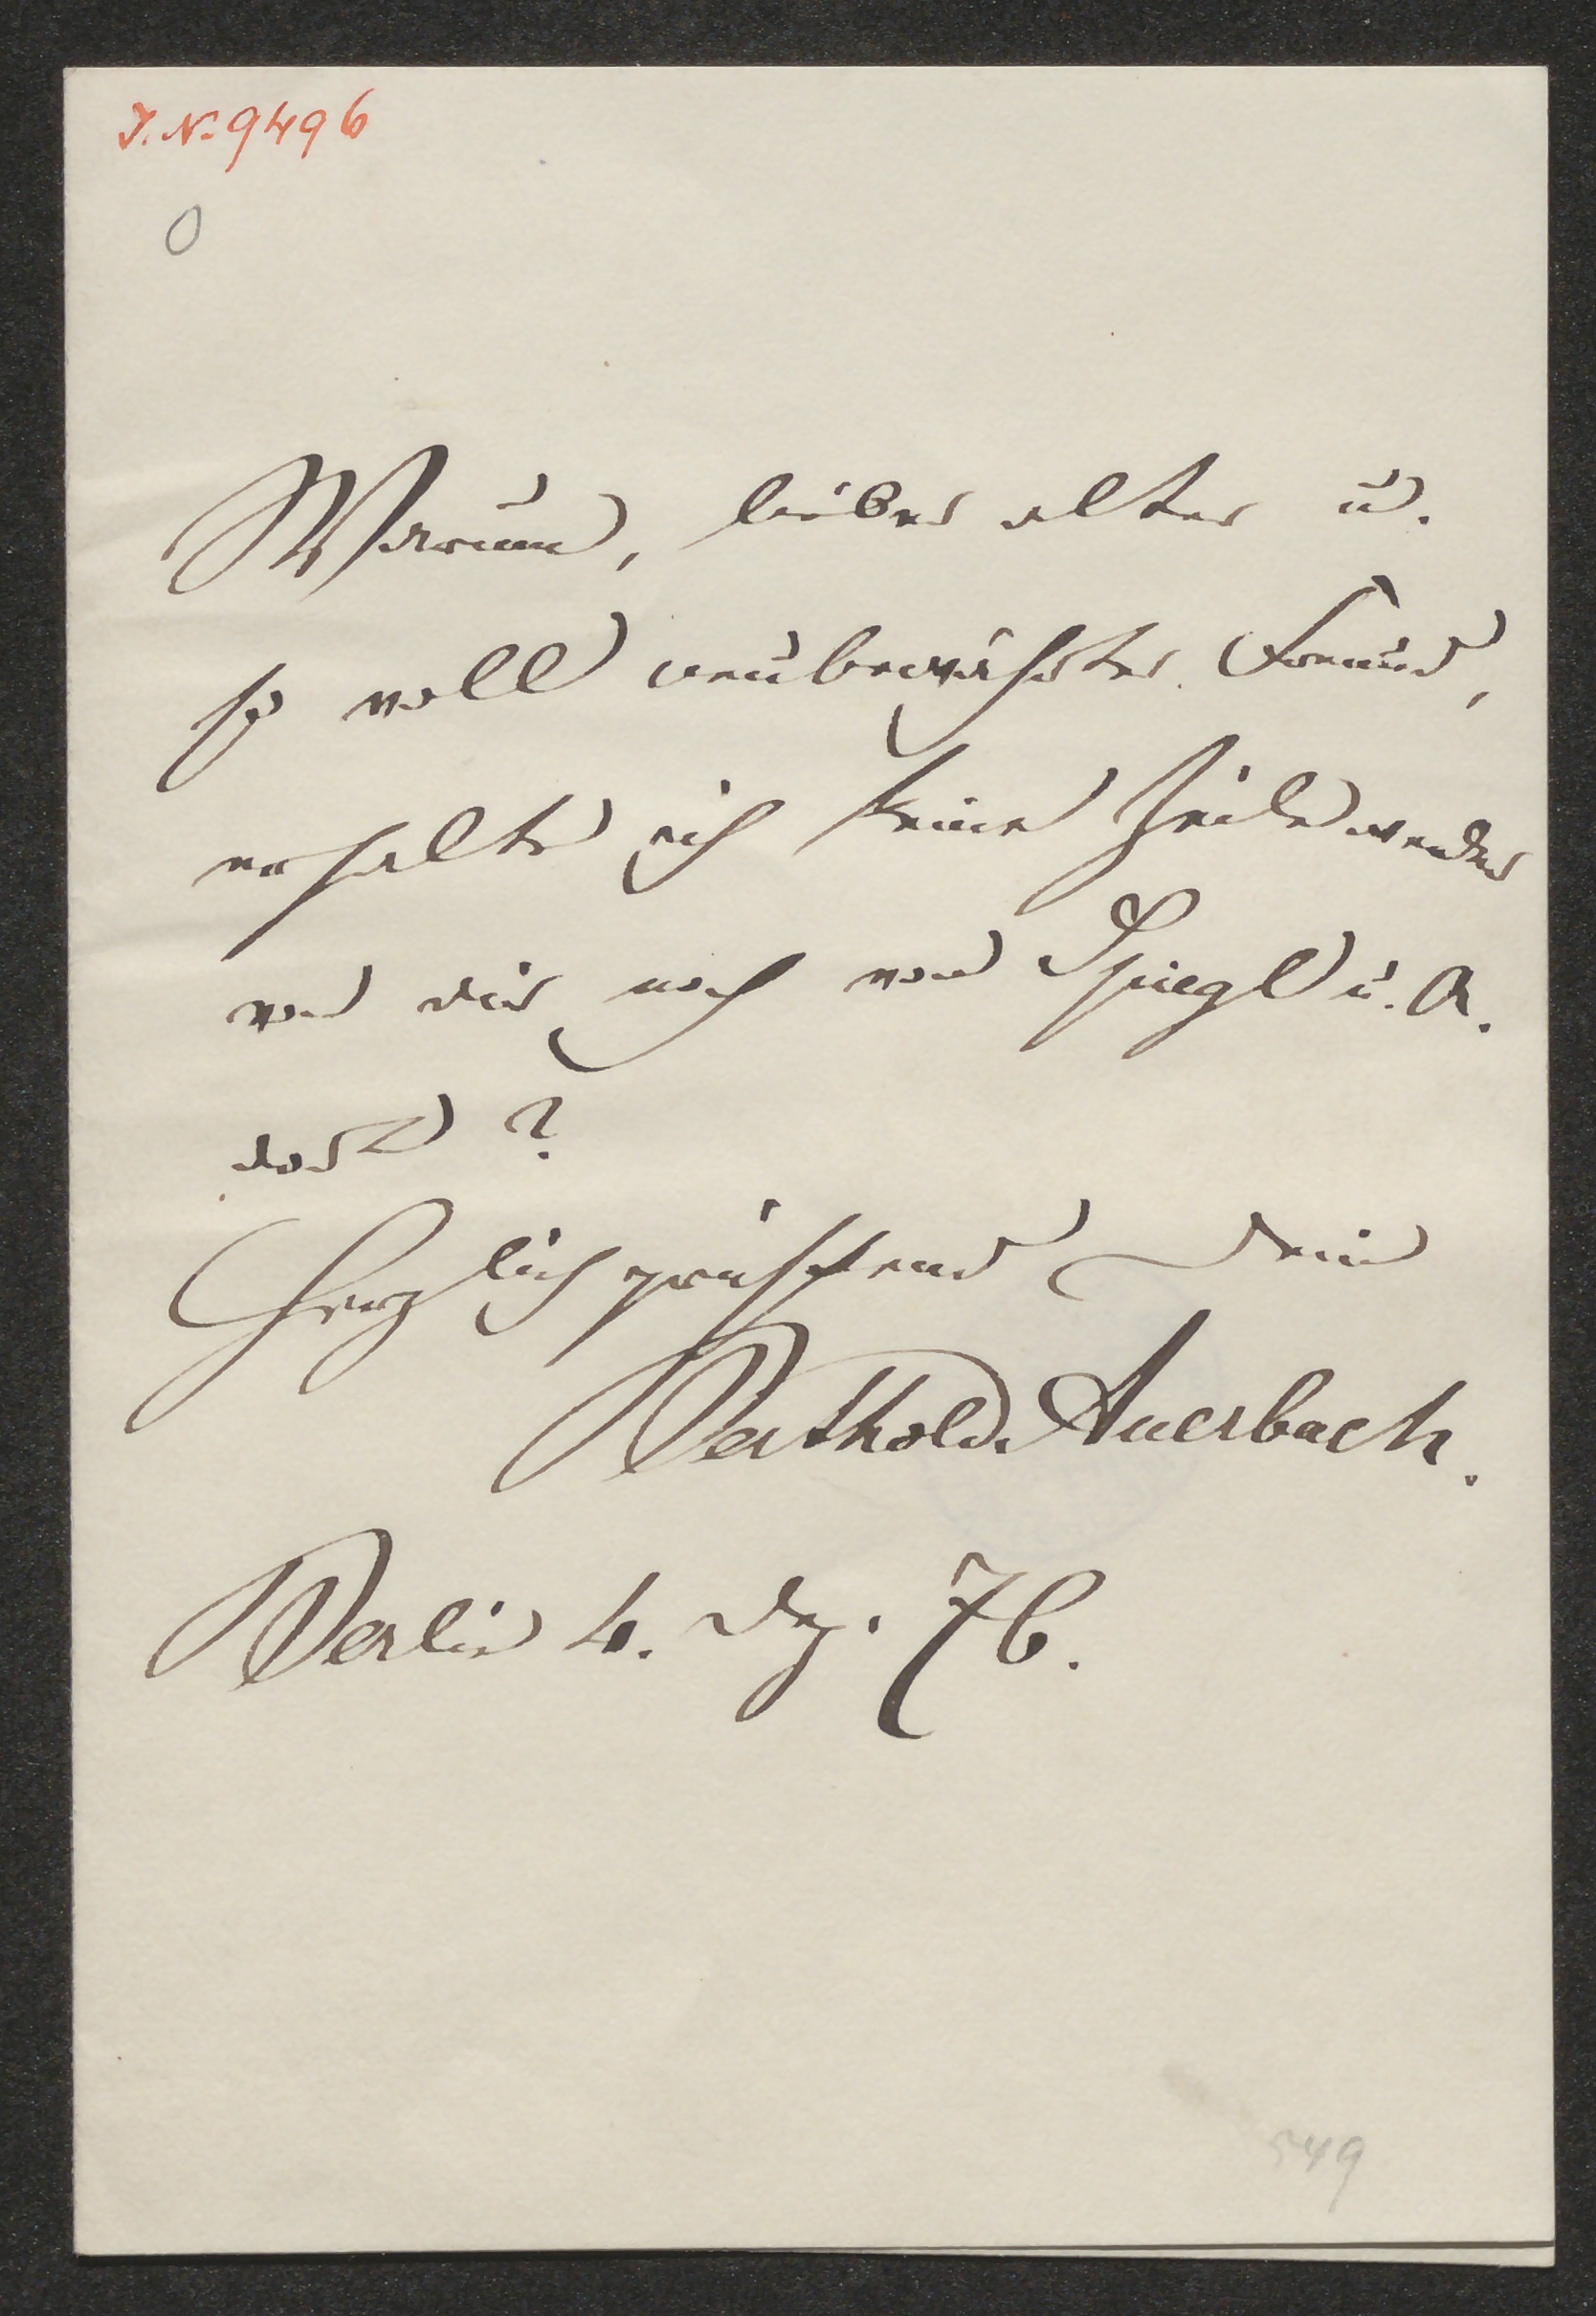 J. N. 9496
0
Warum, lieber alter u.
so voll neubewährter Freund,
erhalte ich keine Zeile weder
von dir noch von Spiegl u. A.
dort?
Herzlich grüßend Dein
Berthold Auerbach.
Berlin 4. Dez. 76.
549